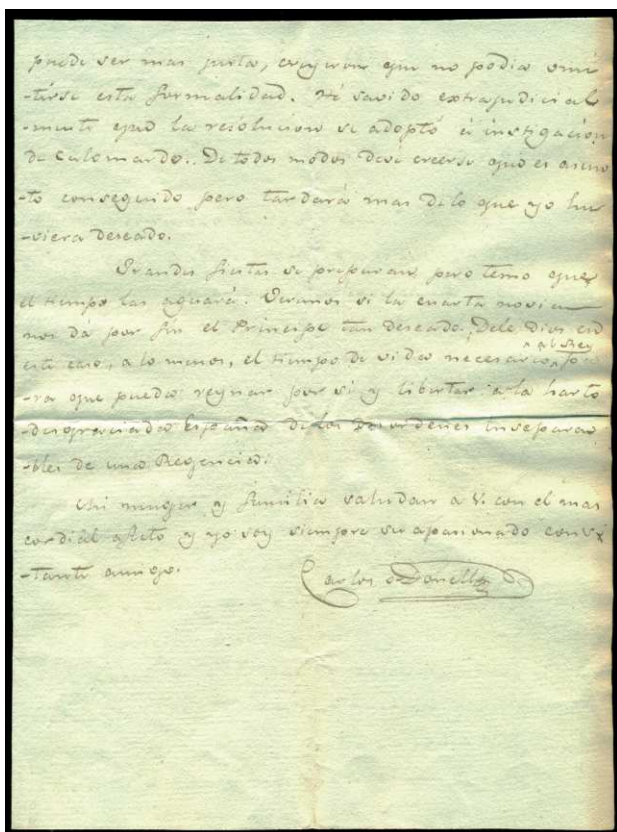 puede ser mas justa, creyeron que no podia omi
-tirse esta formalidad. Hé savido extrajudicial
mente que la resolucion se adoptó á instigacion
de Calomarde.. De todos modos deve creerse que es asun
-to conseguido pero tardará mas delo que yo hu
-viera deseado.
Grandes fiestas se preparan, pero temo que
el tiempo las aguará. Veremos si la cuarta novia
nos dá por fin el Principe tan deseado. Dele Dios en
este caso, a lo menos, el tiempo de vida necesario al Rey pa
-ra que pueda reynar por si y libertar a la harto
-desgraciada España delos Desordenes inseparа
-bles de una Regencia.
Mi muger y familia saludan a V. con el mas
cordial afeto y yo soy siempre su apasionado cons
-tante amigo.
Carlos oDonell